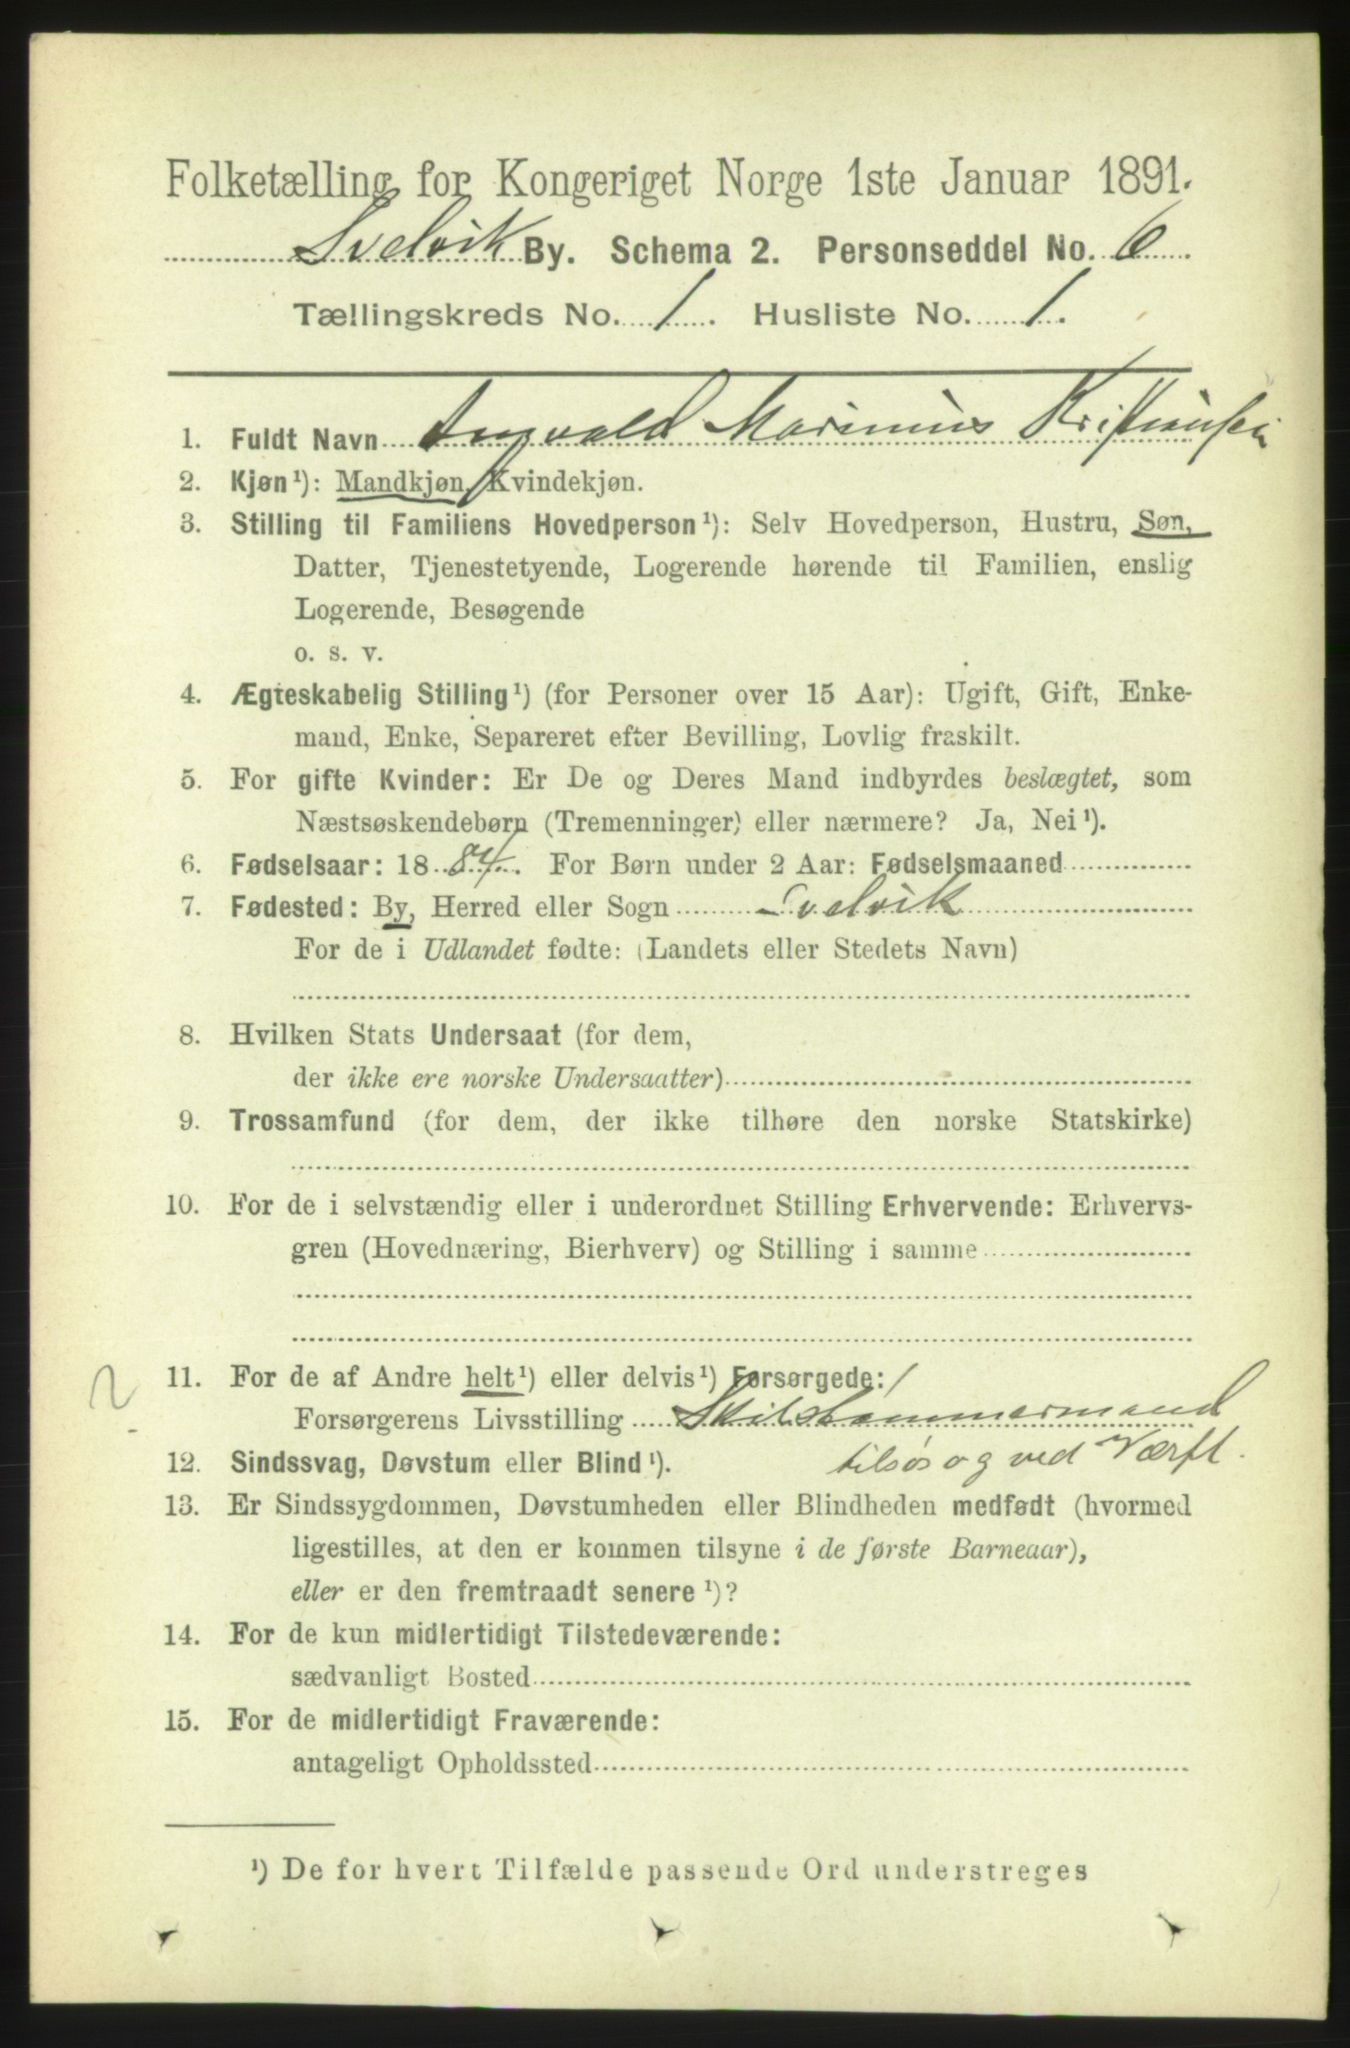 Folketælling for Kongeriget Norge 1ste Januar 1891.
Svelvik By. Schema 2. Personseddel No. 6
Tællingskreds No. 1. Husliste No. 1.
1. Fuldt Navn Ingvald Marinius Kristiansen
2. Kjøn¹): Mandkjøn, Kvindekjøn.
3. Stilling til Familiens Hovedperson¹): Selv Hovedperson, Hustru, Søn,
Datter, Tjenestetyende, Logerende hørende til Familien, enslig
Logerende, Besøgende
o. s. v.
4. Ægteskabelig Stilling¹) (for Personer over 15 Aar): Ugift, Gift, Enke-
mand, Enke, Separeret efter Bevilling, Lovlig fraskilt.
5. For gifte Kvinder: Er De og Deres Mand indbyrdes beslægtet, som
Næstsøskendebørn (Tremenninger) eller nærmere? Ja, Nei¹).
6. Fødselsaar: 1884. For Børn under 2 Aar: Fødselsmaaned
7. Fødested: By, Herred eller Sogn Svelvik
For de i Udlandet fødte: (Landets eller Stedets Navn)
8. Hvilken Stats Undersaat (for dem,
der ikke ere norske Undersaatter)
9. Trossamfund (for dem, der ikke tilhøre den norske Statskirke)
10. For de i selvstændig eller i underordnet Stilling Erhvervende: Erhvervs-
gren (Hovednæring, Bierhverv) og Stilling i samme
2
11. For de af Andre helt¹) eller delvis¹) Forsørgede:
Forsørgerens Livsstilling Skibstømmermand
tilsøs og ved Værft.
12. Sindssvag, Døvstum eller Blind¹).
13. Er Sindssygdommen, Døvstumheden eller Blindheden medfødt (hvormed
ligestilles, at den er kommen tilsyne i de første Barneaar),
eller er den fremtraadt senere¹)?
14. For de kun midlertidigt Tilstedeværende:
sædvanligt Bosted
15. For de midlertidigt Fraværende:
antageligt Opholdssted
¹) De for hvert Tilfælde passende Ord understreges